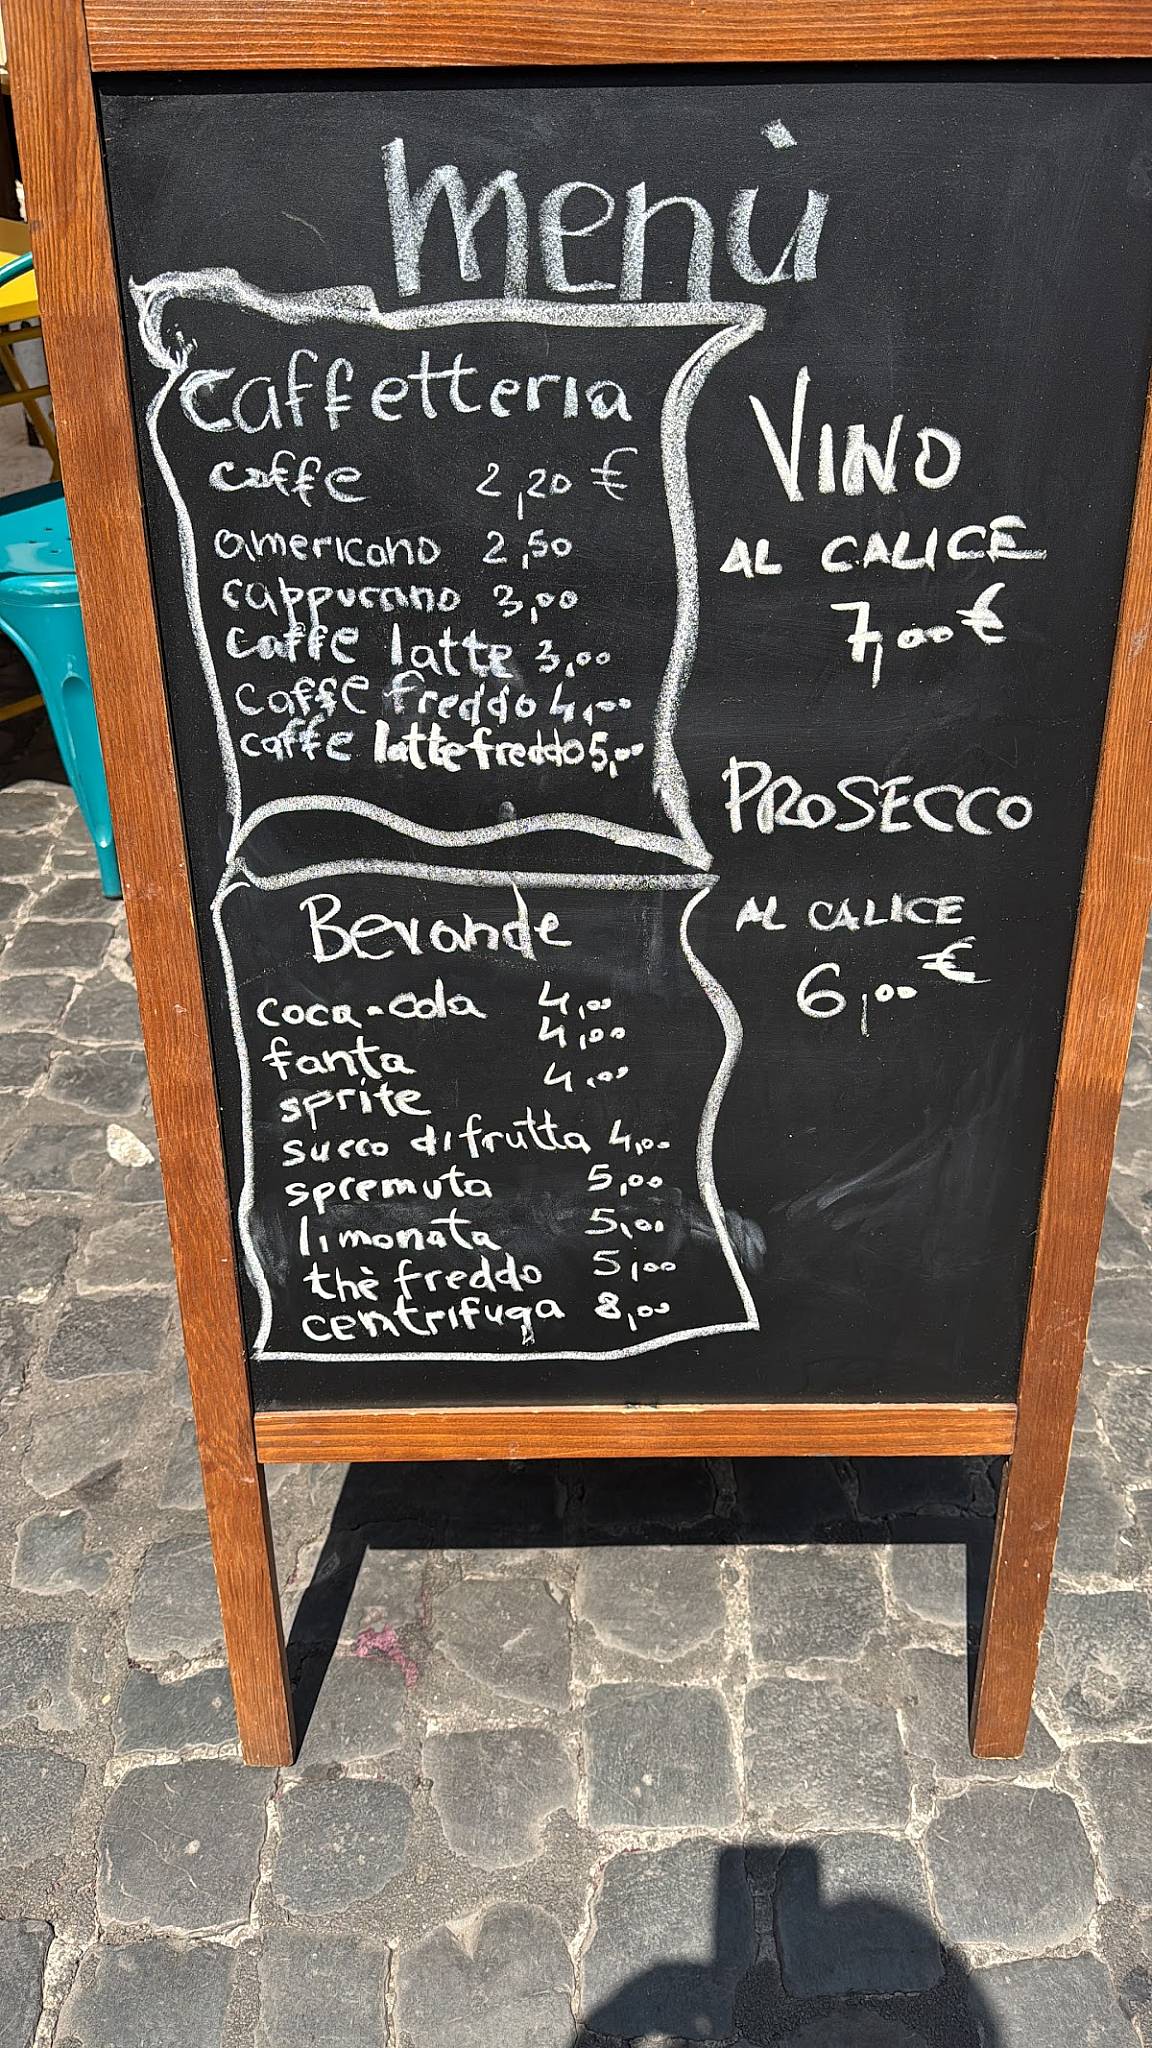 menù
Caffetteria
caffe 2,20 €
americano 2,50
cappuccino 3,00
caffe latte 3,00
caffe freddo 4,00
caffe latte freddo 5,00
Bevande
coca-cola 4,00
fanta 4,00
sprite 4,00
succo di frutta 4,00
spremuta 5,00
limonata 5,00
thè freddo 5,00
centrifuga 8,00
VINO
AL CALICE
7,00 €
PROSECCO
AL CALICE
6,00 €